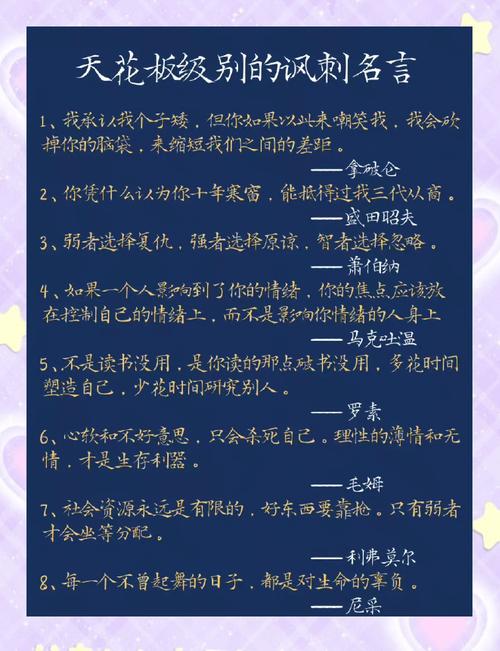 天花板级别的讽刺名言
1、我承认我个子矮，但你如果以此来嘲笑我，我会砍
掉你的脑袋，来缩短我们之间的差距。
——拿破仑
2、你凭什么认为你十年寒窗，能抵得过我三代从商。
——盛田昭夫
3、弱者选择复仇，强者选择原谅，智者选择忽略。
——萧伯纳
4、如果一个人影响到了你的情绪，你的焦点应该放
在控制自己的情绪上，而不是影响你情绪的人身上
——马克吐温
5、不是读书没用，是你读的那点破书没用，多花时间
塑造自己，少花时间研究别人。
——罗素
6、心软和不好意思，只会杀死自己。理性的薄情和无
情，才是生存利器。
——毛姆
7、社会资源永远是有限的，好东西要靠抢。只有弱者
才会坐等分配。
——利弗莫尔
8、每一个不曾起舞的日子，都是对生命的辜负。
——尼采